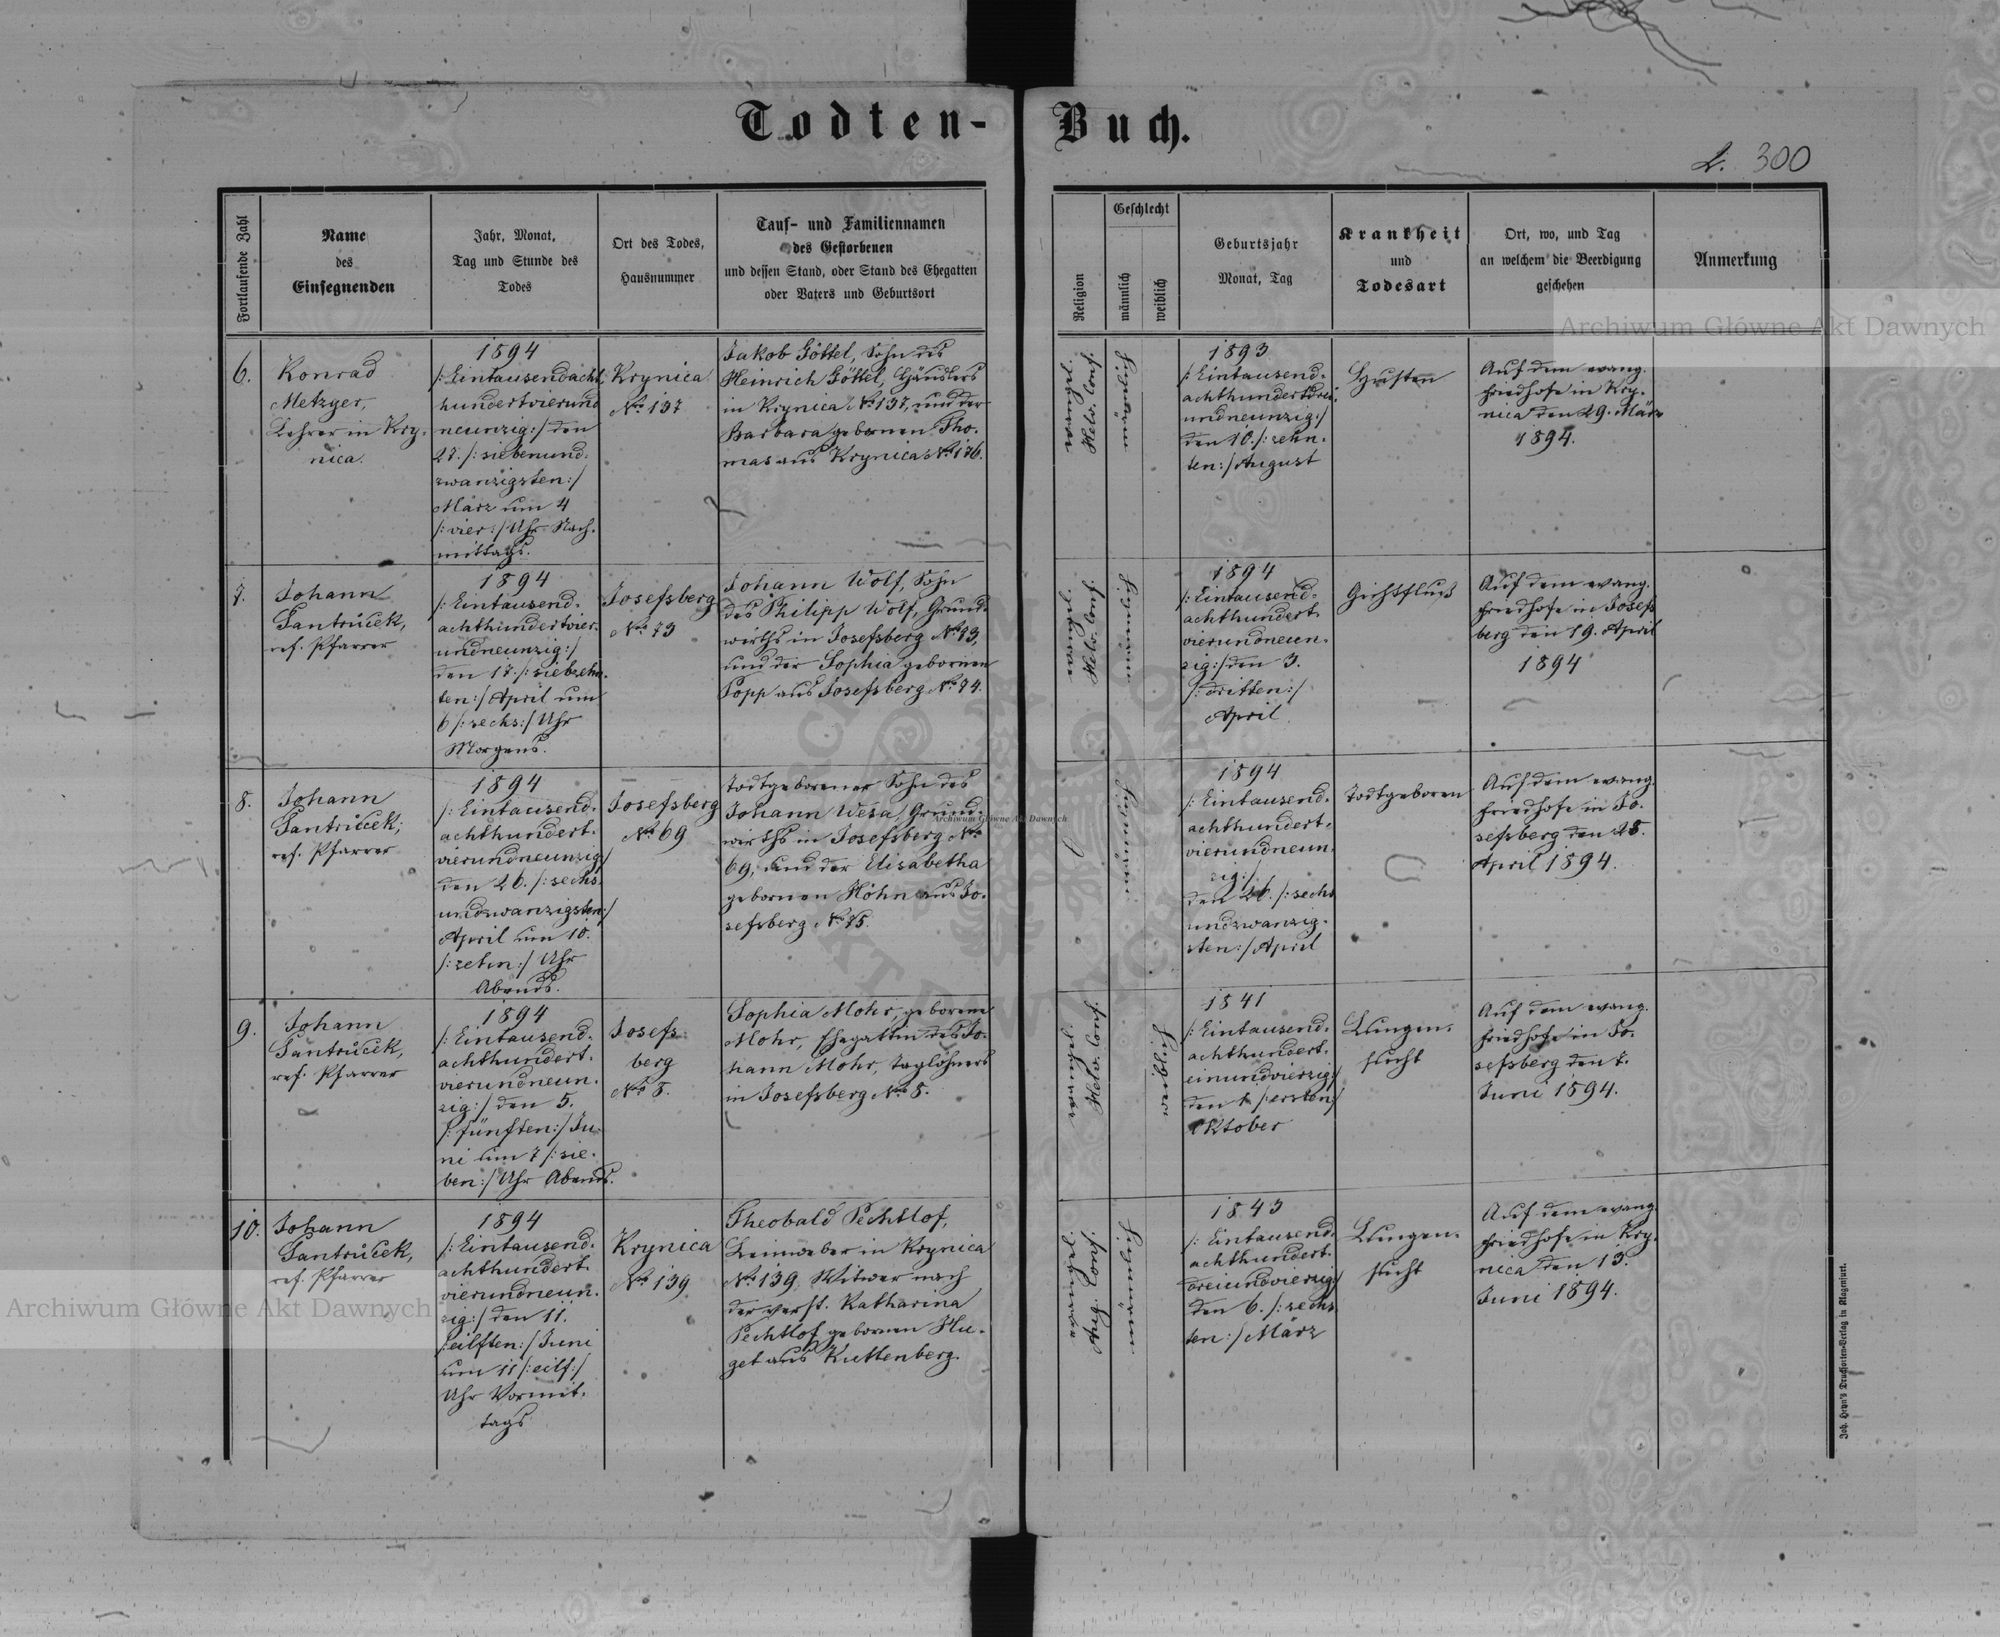 Todten-Buch.
L. 300
Fortlaufende Zahl
Name
des
Einsegnenden
Jahr, Monat,
Tag und Stunde des
Todes
Ort des Todes,
Hausnummer
Tauf- und Familiennamen
des Gestorbenen
und dessen Stand, oder Stand des Ehegatten
oder Vaters und Geburtsort
Religion
Geschlecht
männlich
weiblich
Geburtsjahr
Monat, Tag
Krankheit
und
Todesart
Ort, wo, und Tag
an welchem die Beerdigung
geschehen
Anmerkung
6.
Konrad
Metzger,
Lehrer in Kry-
nica.
1894
/:Eintausendacht-
hundertvierund
neunzig:/ den
27. /:siebenund-
zwanzigsten:/
März um 4
/:vier:/ Uhr Nach-
mittags.
Krynica
No 137
Jakob Göttel, Sohn des
Heinrich Göttel, Händlers
in Krynica No 137, und der
Barbara gebornen Tho-
mas aus Krynica No 176.
evangel.
Helv. Conf.
1893
/:Eintausend-
achthundertdrei-
undneunzig:/
den 10. /:zehn-
ten:/ August
Husten
Auf dem evang.
Friedhofe in Kry-
nica den 29. März
1894.
7.
Johann
Jantrůcek,
ref. Pfarrer
1894
/:Eintausend-
achthundertvier-
undneunzig:/
den 17. /:siebzehn-
ten:/ April um
6 /:sechs:/ Uhr
Morgens.
Josefsberg
No 73
Johann Wolf, Sohn
des Philipp Wolf, Grund-
wirths in Josefsberg No 73,
und der Sophia gebornen
Popp aus Josefsberg No 74.
evangel.
Helv. Conf.
1894
/:Eintausend-
achthundert
vierundneun-
zig:/ den 3.
/:dritten:/
April
Auf dem evang.
Friedhofe in Josefs
berg den 19. April
1894
8.
Johann
Jantrůcek,
ref. Pfarrer
1894
/:Eintausend-
achthundert-
vierundneunzig:/
den 26. /:sechs-
undzwanzigsten:/
April um 10.
/:zehn:/ Uhr
Abends.
Josefsberg
No 69
Todtgeborener Sohn des
Johann Wesa, Grund-
wirths in Josefsberg No
69, und der Elisabetha
gebornen Höhn aus Jo-
sefsberg No 75.
1894
/:Eintausend-
achthundert-
vierundneun-
zig:/
den 26. /:sechs
undzwanzig-
sten:/ April
Todtgeboren
Auf dem evang.
Friedhofe in Jo-
sefsberg den 28.
April 1894.
9.
Johann
Jantrůcek,
ref. Pfarrer
1894
/:Eintausend-
achthundert-
vierundneun-
zig:/ den 5.
/:fünften:/ Ju-
ni um 7 /:sie-
ben:/ Uhr Abends.
Josefs-
berg
No 8.
Sophia Mohr, geborene
Mohr, Ehegattin des Jo-
hann Mohr, Taglöhners
in Josefsberg No 8.
evangel.
Helv. Conf.
1841
/:Eintausend-
achthundert-
einundvierzig:/
den 1 /:ersten:/
Oktober
Lungen-
sucht
Auf dem evang.
Friedhofe in Jo-
sefsberg den 7.
Juni 1894.
10.
Johann
Jantrůcek,
ref. Pfarrer
1894
/:Eintausend-
achthundert
vierundneun-
zig:/ den 11.
/:eilften:/ Juni
um 11 /:eilf:/
Uhr Vormit-
tags
Krynica
No 139
Theobald Pechtlof,
Leinweber in Krynica
No 139, Witwer nach
der verst. Katharina
Pechtlof gebornen Hu-
get aus Kuttenberg.
evangel.
Augs. Konf.
1843
/:Eintausend-
achthundert-
dreiundvierzig:/
den 6. /:sechs
ten:/ März
Lungen-
sucht
Auf dem evang.
Friedhofe in Kry-
nica den 13.
Juni 1894.
Joh. Heyn's Drucksorten-Verlag in Klagenfurt.
Archiwum Główne Akt Dawnych
Archiwum Główne Akt Dawnych
Archiwum Główne Akt Dawnych